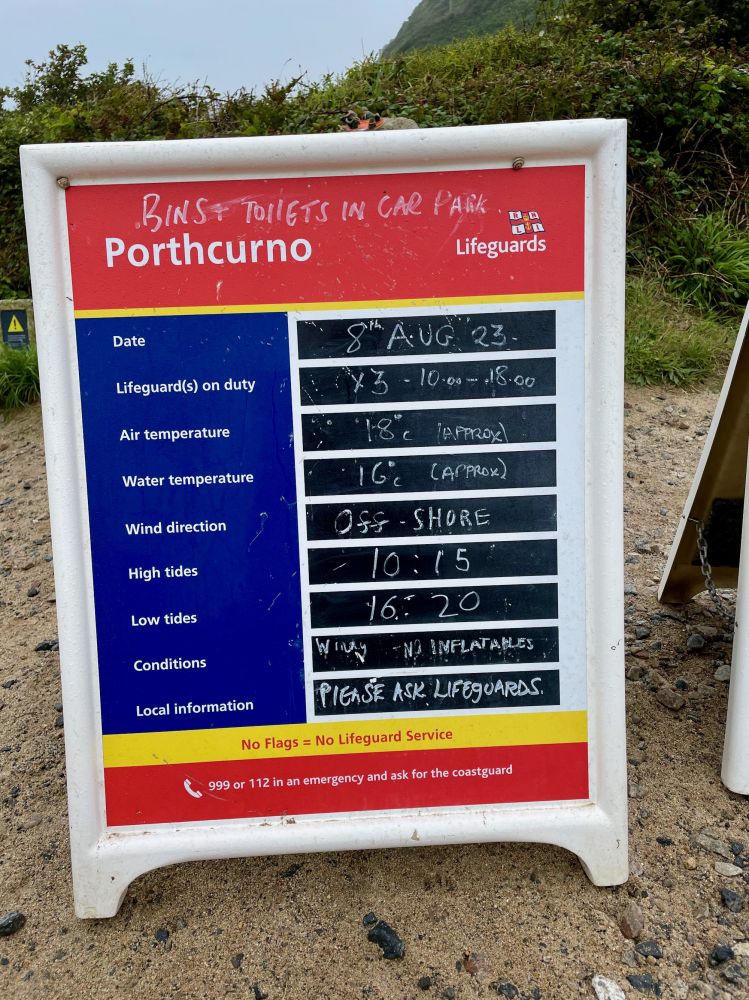 BINS + TOILETS IN CAR PARK
Porthcurno
RNLI
Lifeguards
Date 8th AUG 23.
Lifeguard(s) on duty x3 - 10.00 - 18.00
Air temperature 18°c (APPROX)
Water temperature 16°c (APPROX)
Wind direction OFF-SHORE
High tides 10:15
Low tides 16:20
Conditions WINDY - NO INFLATABLES
Local information PLEASE ASK LIFEGUARDS.
No Flags = No Lifeguard Service
999 or 112 in an emergency and ask for the coastguard